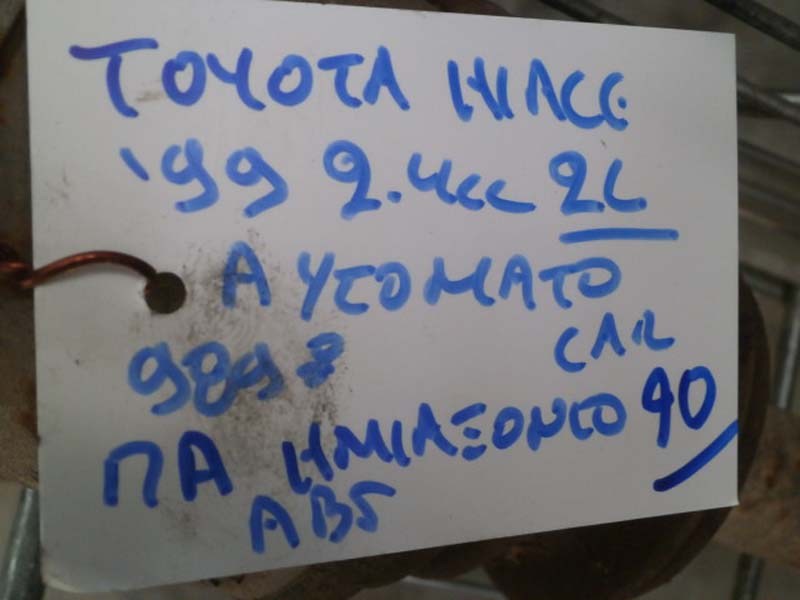 TOYOTA HIACE
'99 2.4cc 2L
ΑΥΤΟΜΑΤΟ
CAR
9898
ΠΑ ΗΜΙΑΞΟΝΙΟ 90
ABS